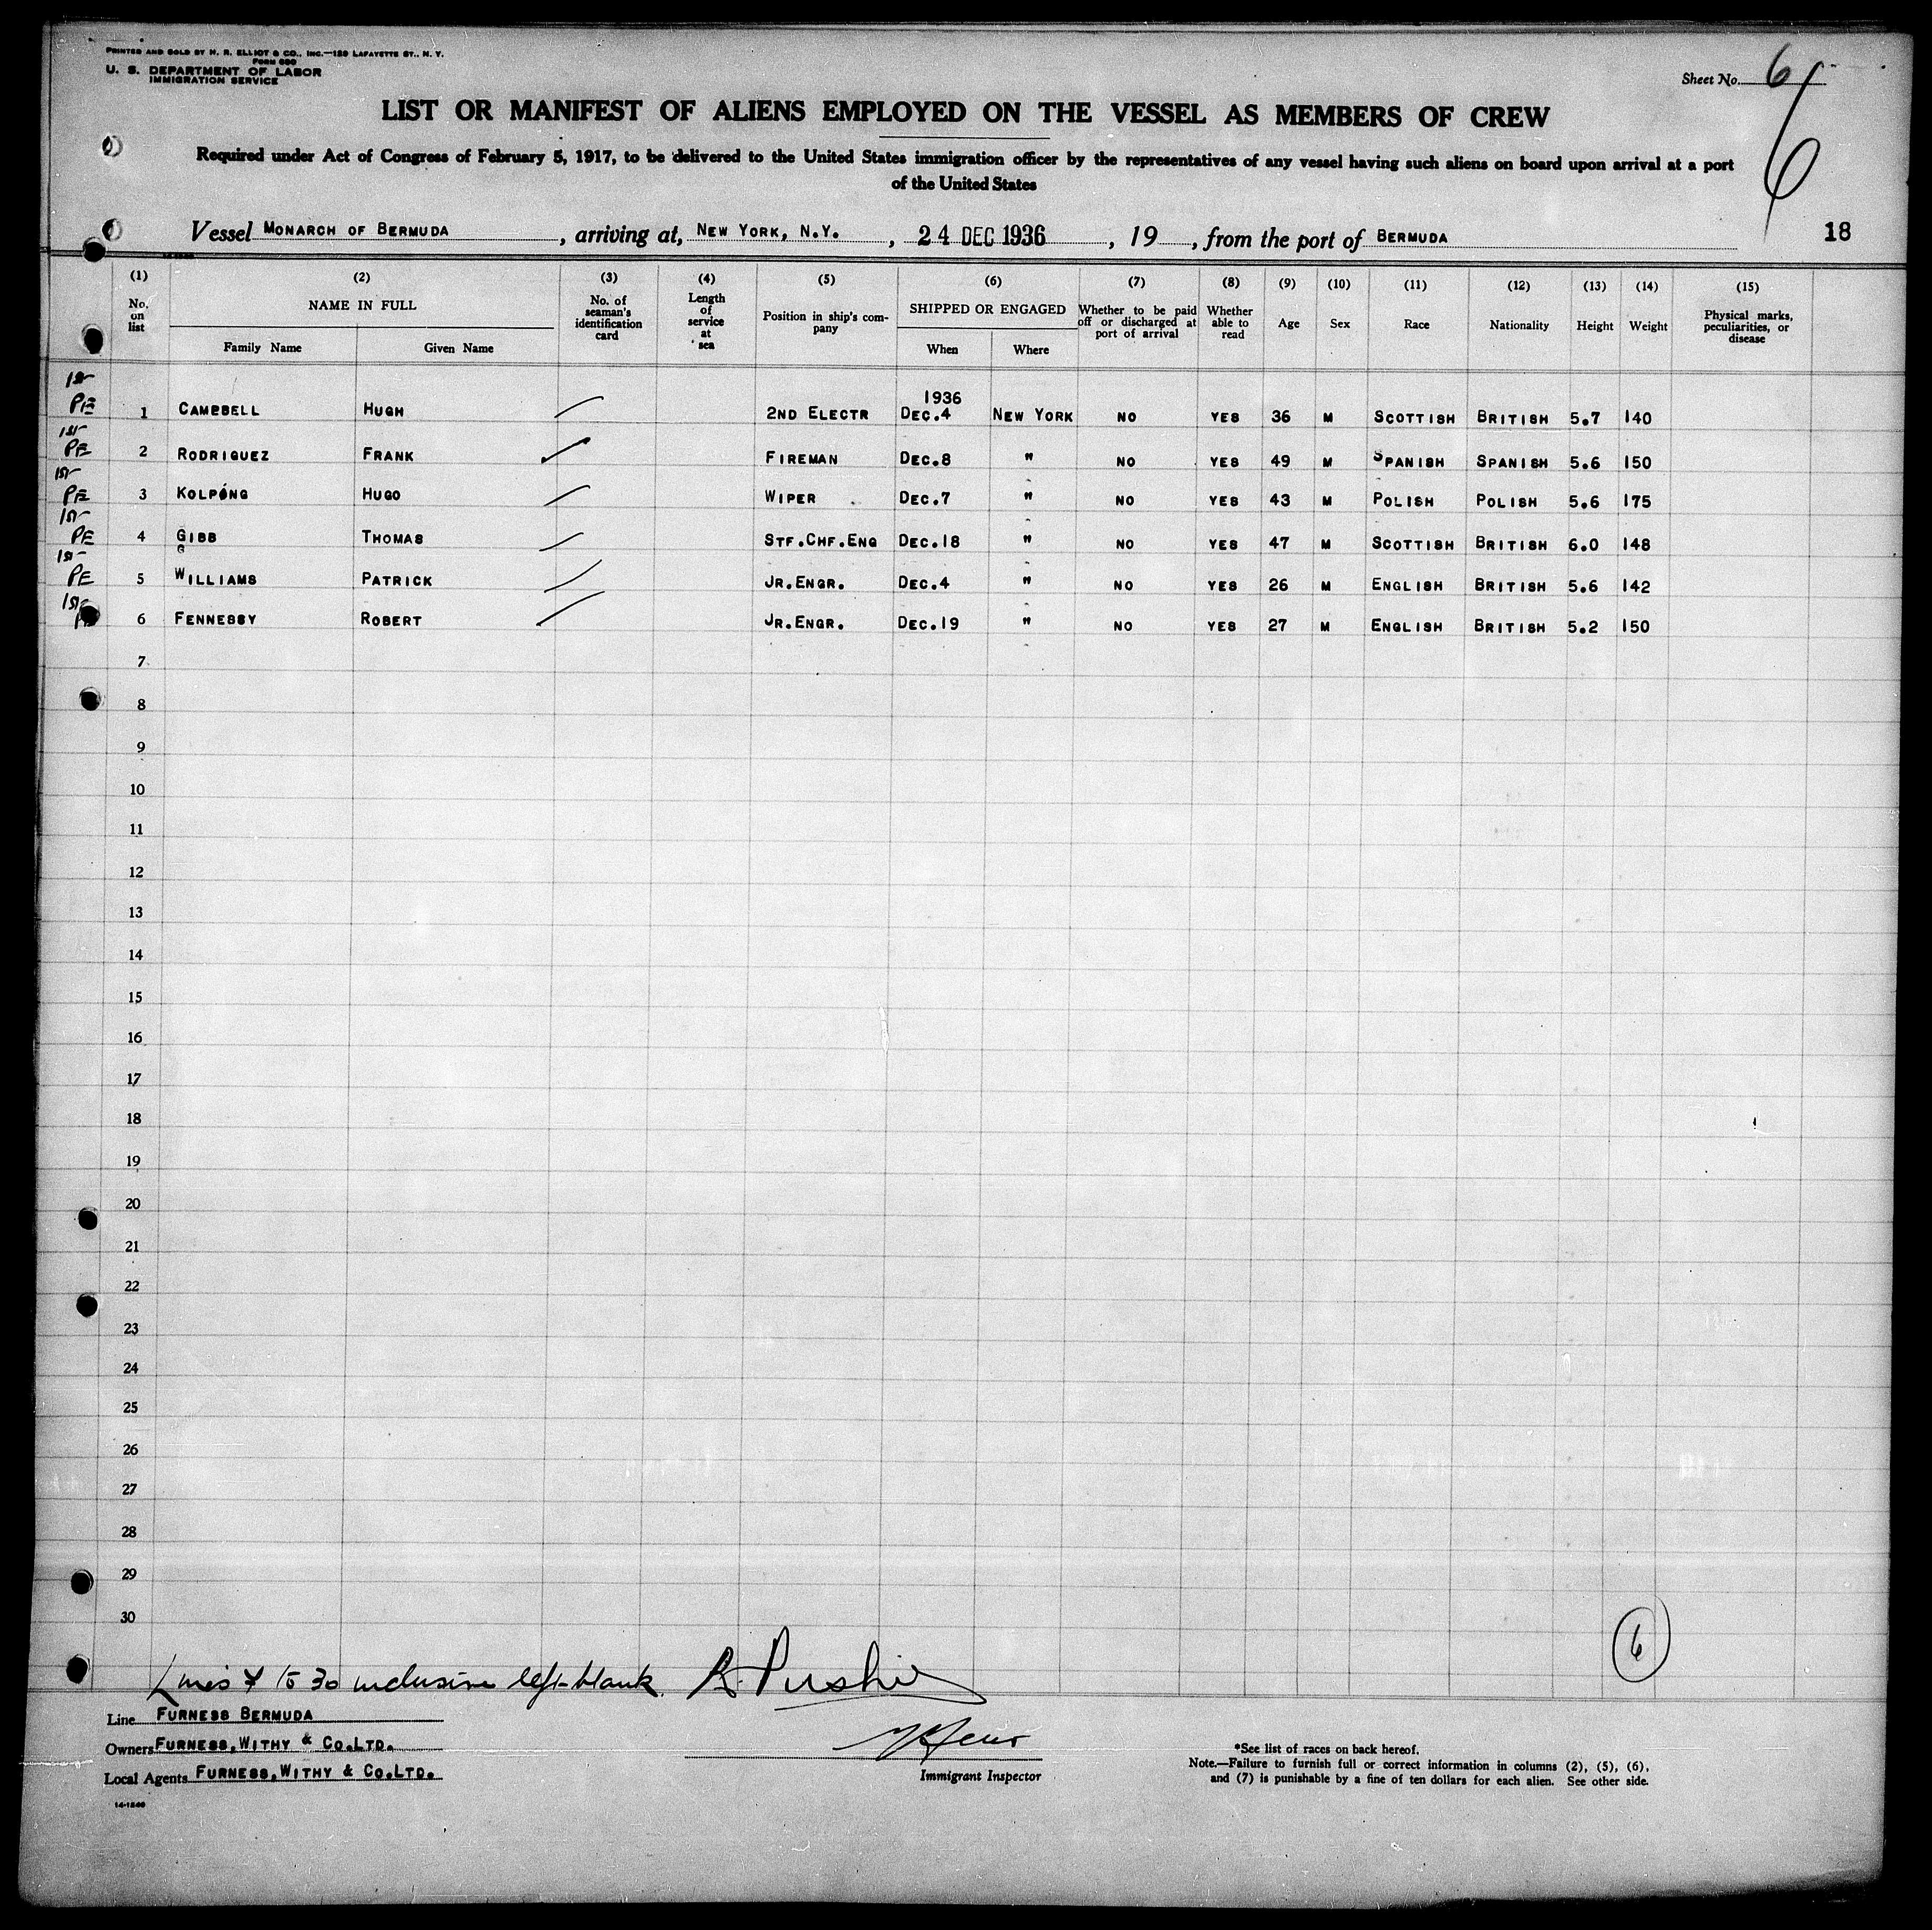 PRINTED AND SOLD BY H. R. ELLIOT & CO., INC.—129 LAFAYETTE ST., N. Y.
FORM 680
U. S. DEPARTMENT OF LABOR
IMMIGRATION SERVICE
Sheet No. 6
6
LIST OR MANIFEST OF ALIENS EMPLOYED ON THE VESSEL AS MEMBERS OF CREW
Required under Act of Congress of February 5, 1917, to be delivered to the United States immigration officer by the representatives of any vessel having such aliens on board upon arrival at a port
of the United States
Vessel MONARCH OF BERMUDA, arriving at, NEW YORK, N.Y., 24 DEC 1936, 19, from the port of BERMUDA 18
(1) (2) (3) (4) (5) (6) (7) (8) (9) (10) (11) (12) (13) (14) (15)
No. on list NAME IN FULL Family Name Given Name No. of seaman's identification card Length of service at sea Position in ship's company SHIPPED OR ENGAGED When Where Whether to be paid off or discharged at port of arrival Whether able to read Age Sex Race Nationality Height Weight Physical marks, peculiarities, or disease
1936
1st PE 1 CAMPBELL HUGH 2ND ELECTR DEC.4 NEW YORK NO YES 36 M SCOTTISH BRITISH 5.7 140
1st PE 2 RODRIGUEZ FRANK FIREMAN DEC.8 " NO YES 49 M SPANISH SPANISH 5.6 150
1st PE 3 KOLPONG HUGO WIPER DEC.7 " NO YES 43 M POLISH POLISH 5.6 175
1st PE 4 GIBB THOMAS STF.CHF.ENG DEC.18 " NO YES 47 M SCOTTISH BRITISH 6.0 148
1st PE 5 WILLIAMS PATRICK JR.ENGR. DEC.4 " NO YES 26 M ENGLISH BRITISH 5.6 142
1st 6 FENNESSY ROBERT JR.ENGR. DEC.19 " NO YES 27 M ENGLISH BRITISH 5.2 150
7
8
9
10
11
12
13
14
15
16
17
18
19
20
21
22
23
24
25
26
27
28
29
30
6
Lines 7 to 30 inclusive left blank.
Line FURNESS BERMUDA
Owners FURNESS, WITHY & CO.LTD.
Local Agents FURNESS, WITHY & CO.LTD.
Immigrant Inspector
*See list of races on back hereof.
Note.—Failure to furnish full or correct information in columns (2), (5), (6),
and (7) is punishable by a fine of ten dollars for each alien. See other side.